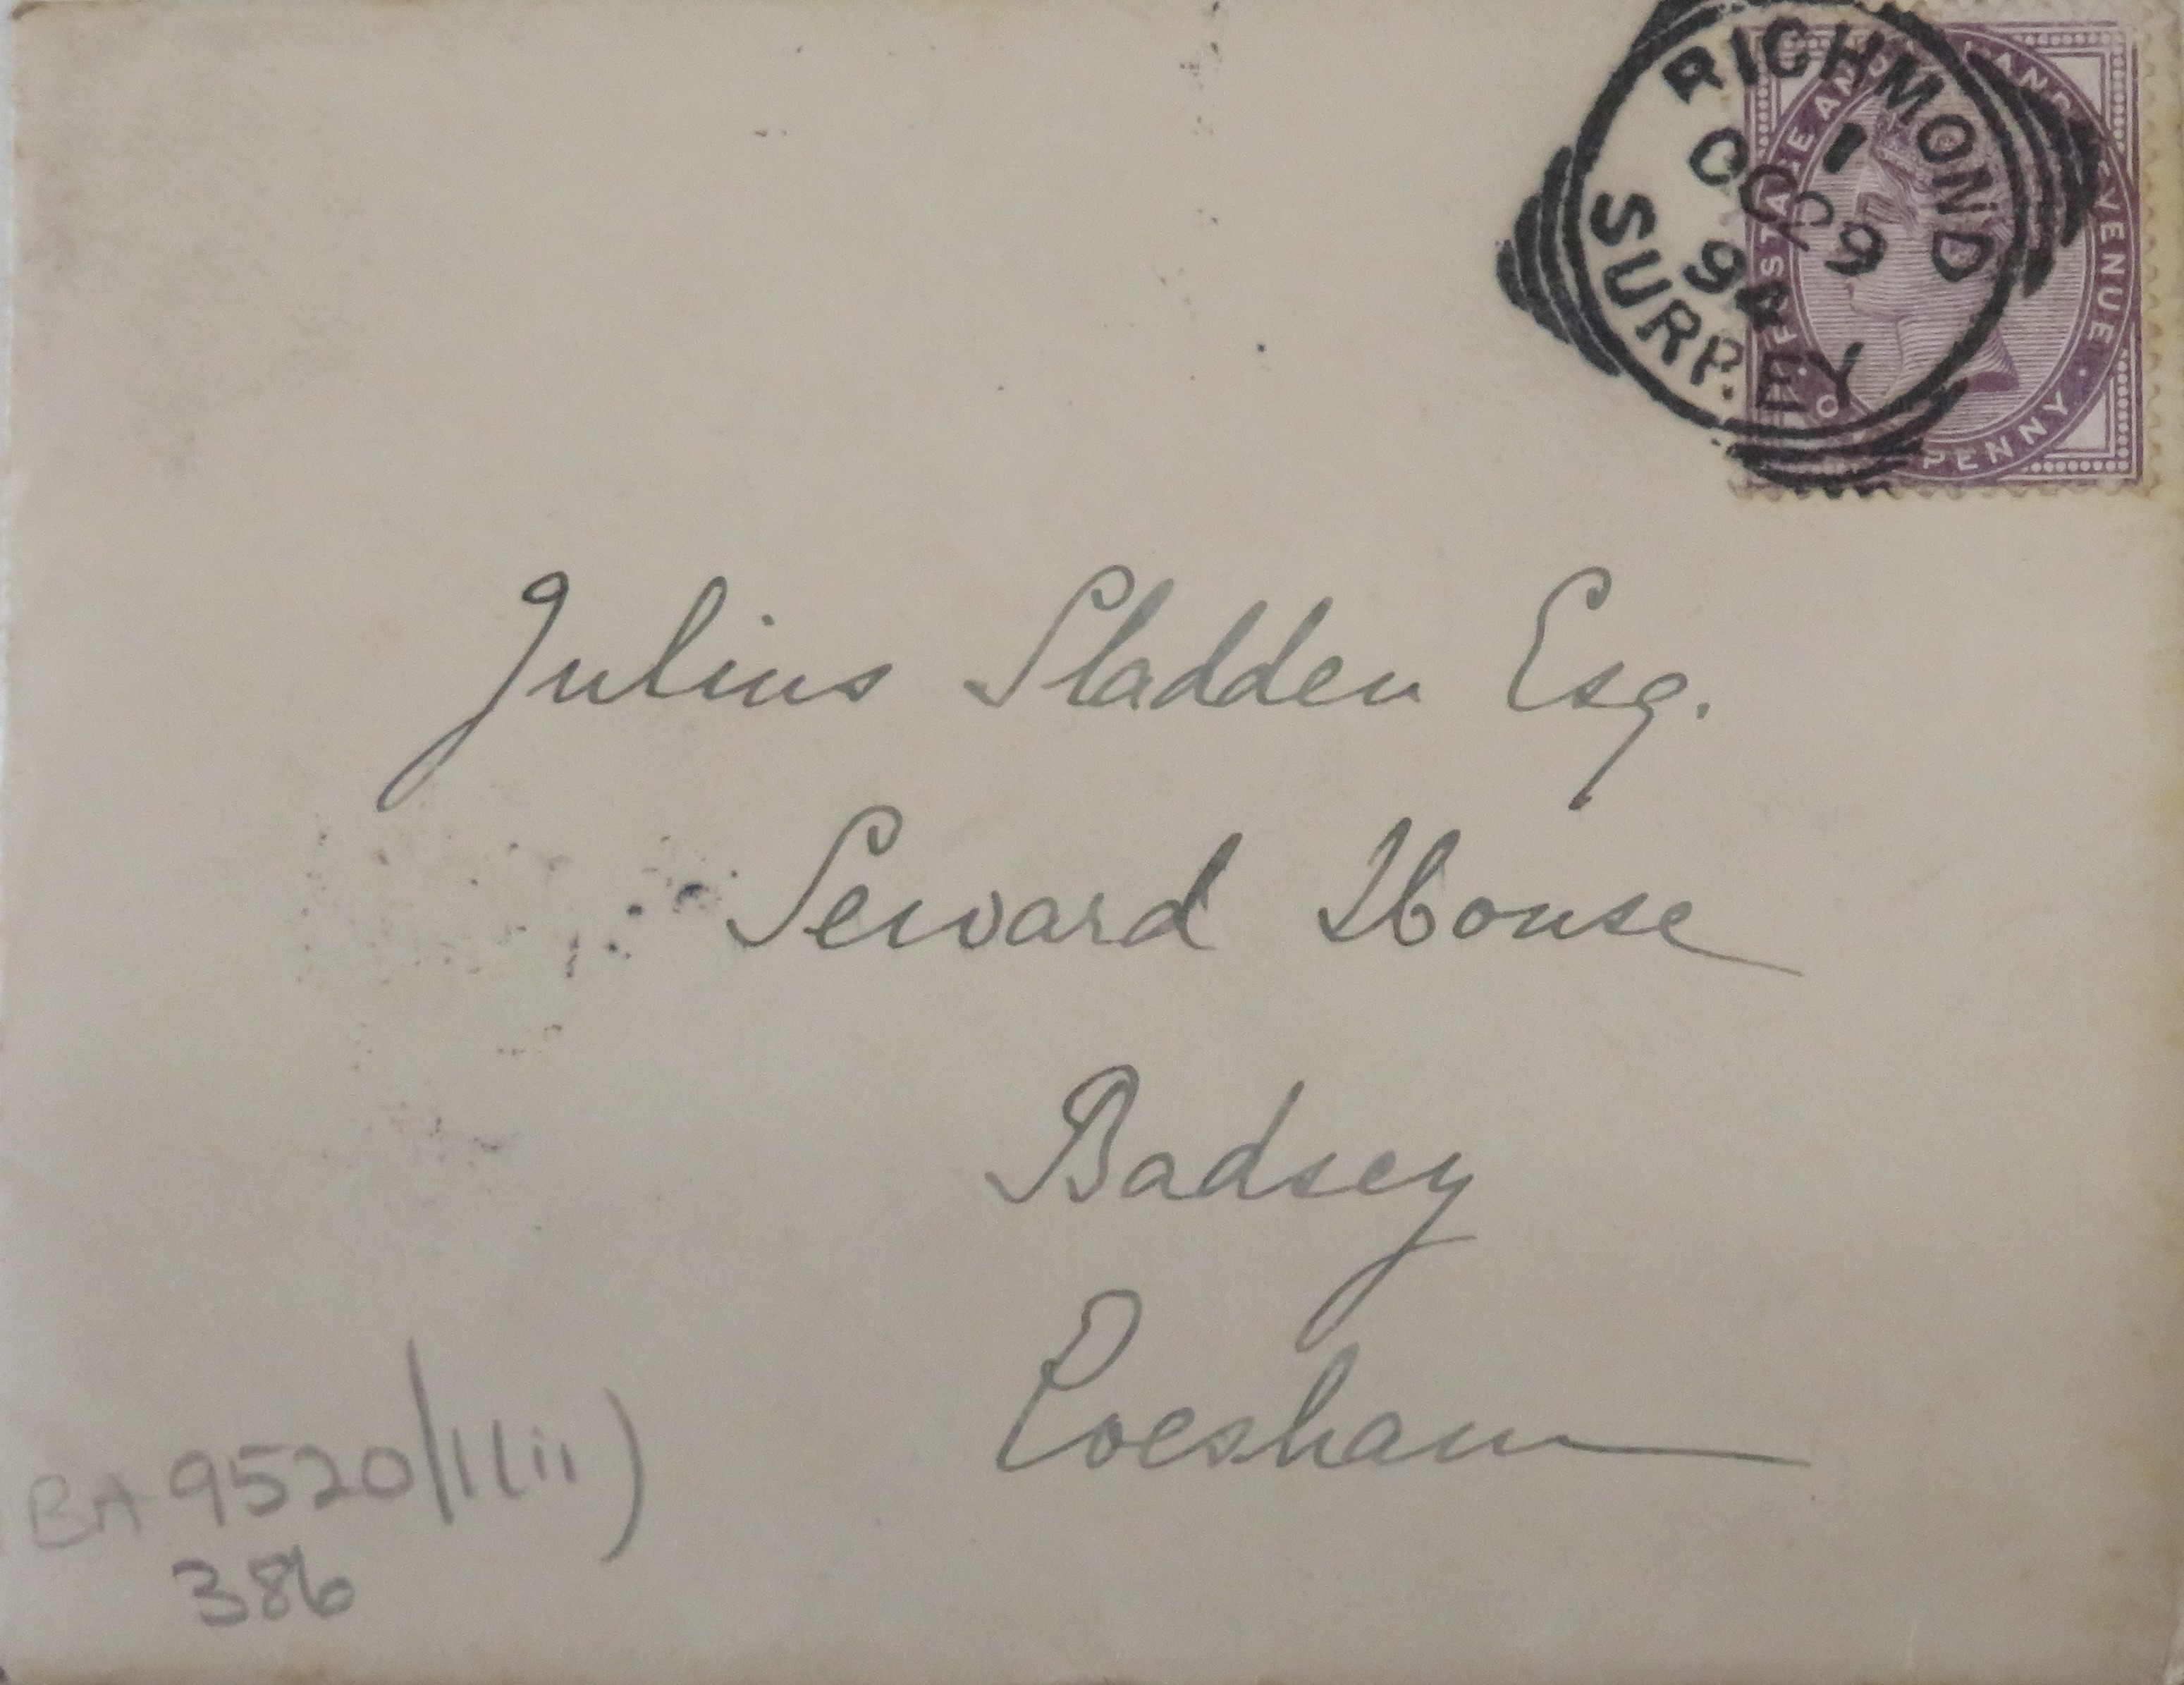 RICHMOND
1
OC 9
94
SURREY
POSTAGE AND INLAND REVENUE
ONE PENNY
Julius Sladden Esq.
Seward House
Badsey
Evesham
BA 9520/1(ii)
386